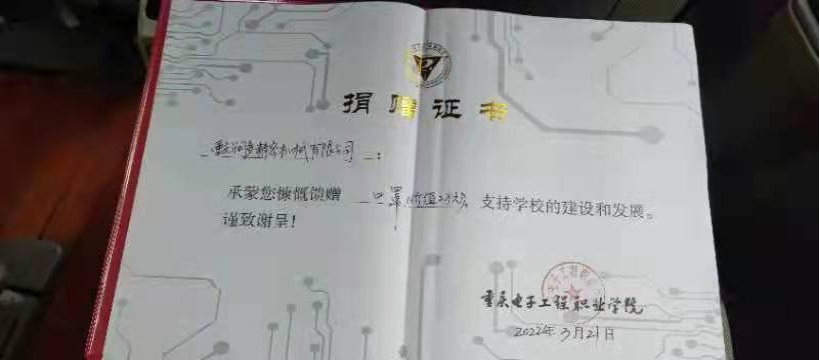 捐赠证书
精密机械有限公司：
承蒙您慷慨馈赠 口罩价值2万元 支持学校的建设和发展。
谨致谢呈！
重庆电子工程职业学院
2022年3月21日